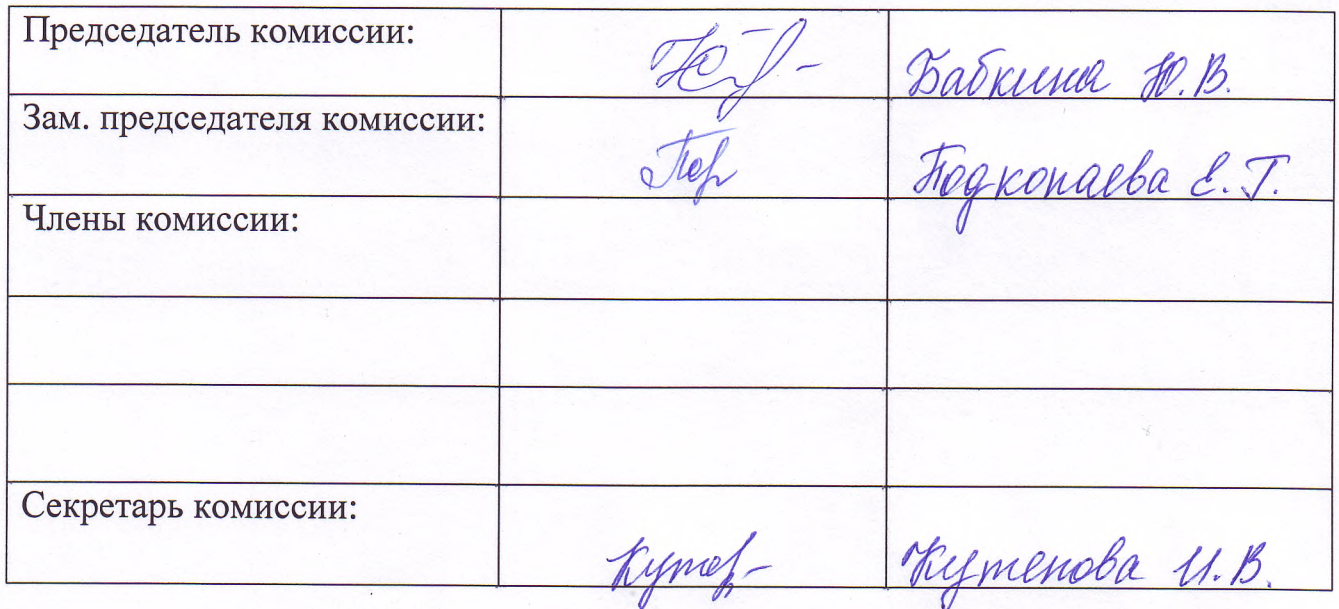 Председатель комиссии:
Бабкина Ю.В.
Зам. председателя комиссии:
Подкопаева Е.Г.
Члены комиссии:
Секретарь комиссии:
Кутепова И.В.